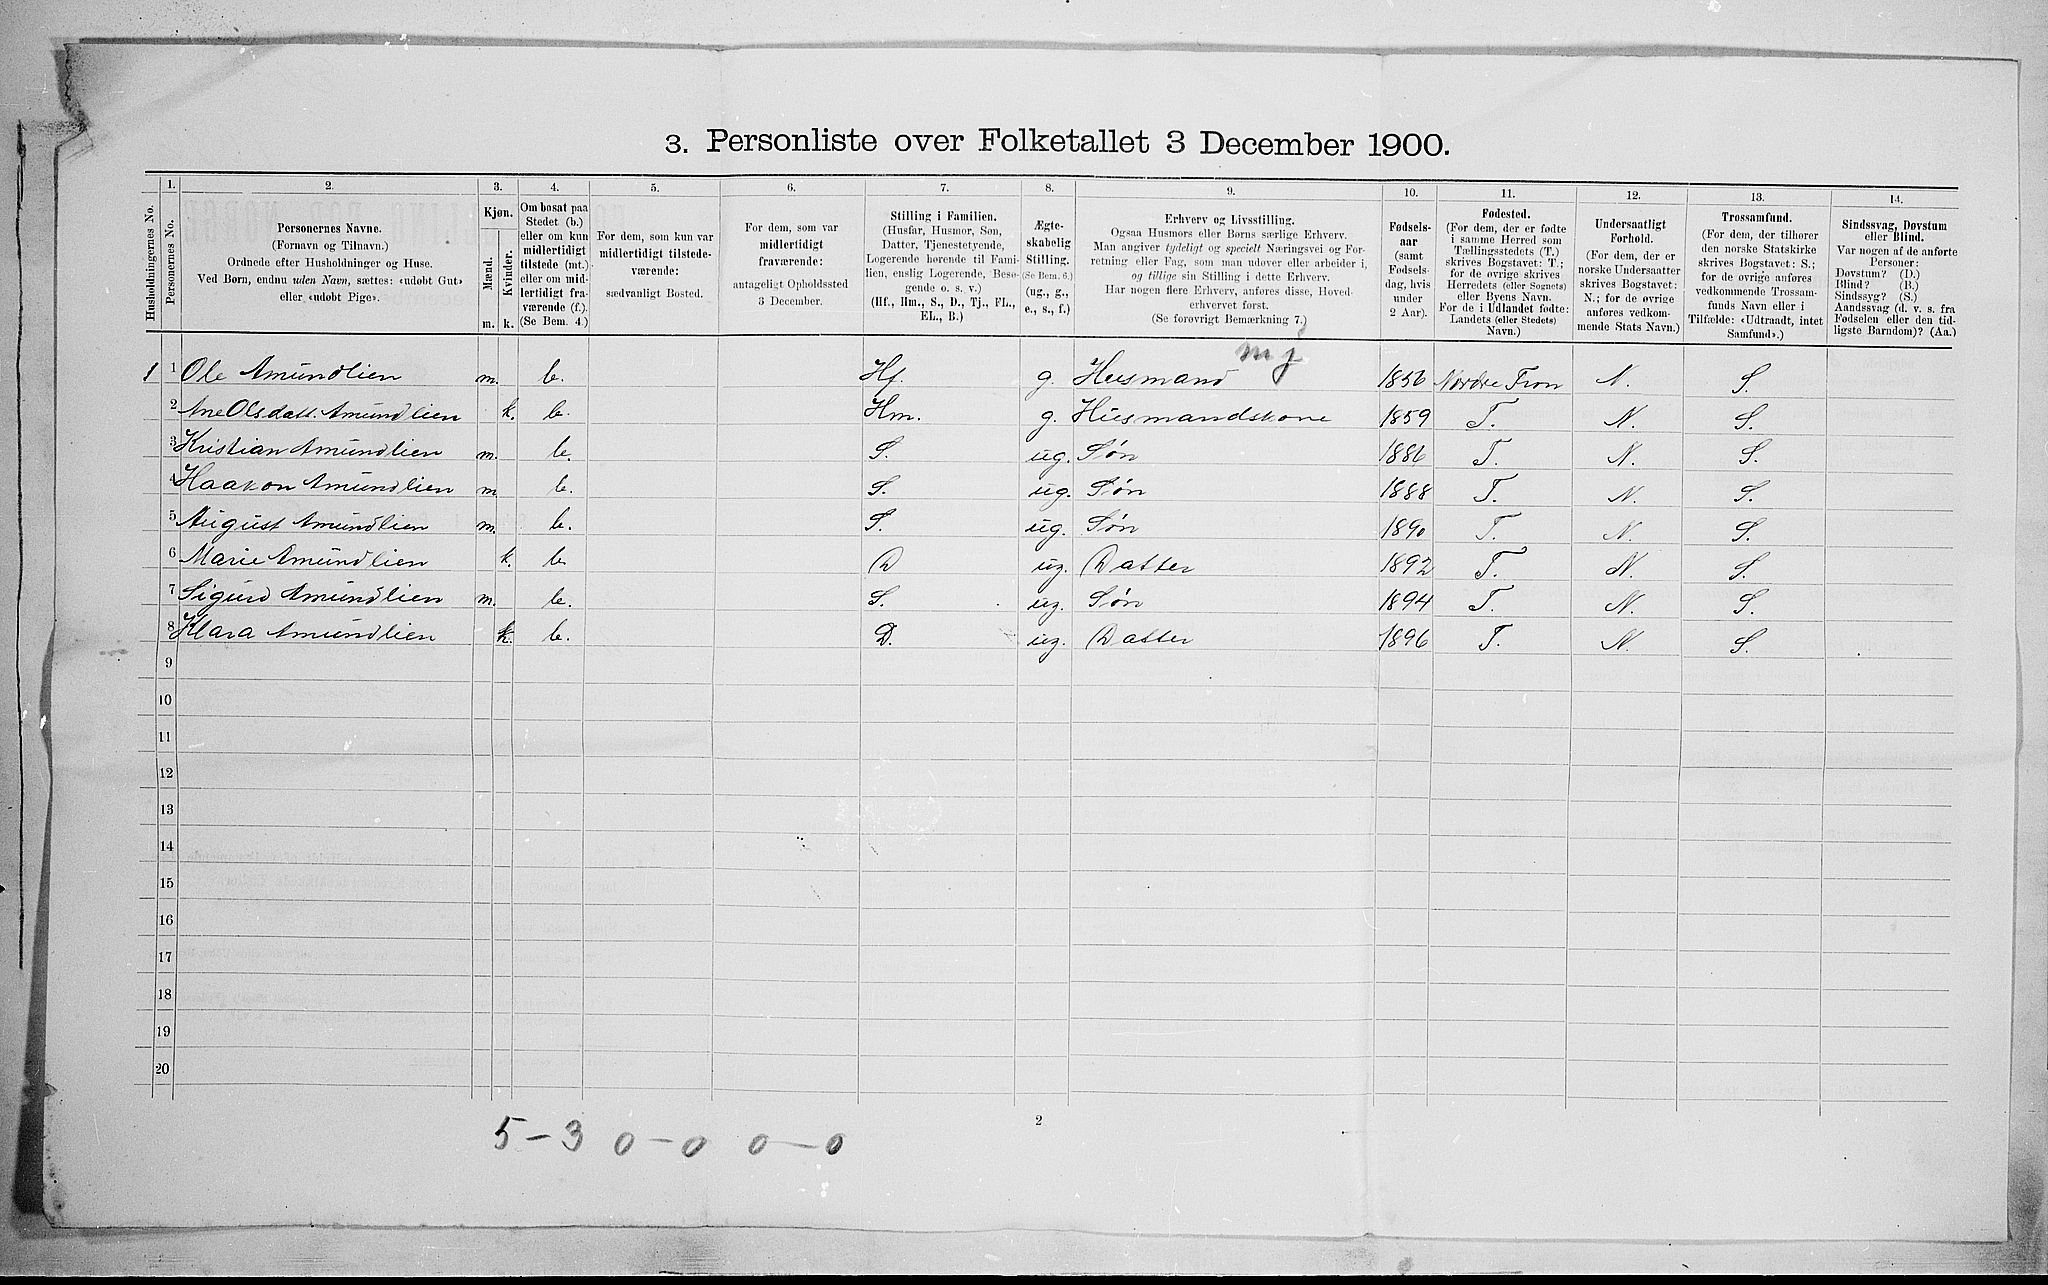 3. Personliste over Folketallet 3 December 1900.
1. 2. 3. 4. 5. 6. 7. 8. 9. 10. 11. 12. 13. 14.
Husholdningernes No.
Personernes No.
Personernes Navne.
(Fornavn og Tilnavn.)
Ordnede efter Husholdninger og Huse.
Ved Børn, endnu uden Navn, sættes: «udøbt Gut»
eller «udøbt Pige».
Kjøn.
Mænd.
Kvinder.
m. k.
Om bosat paa
Stedet (b.)
eller om kun
midlertidigt
tilstede (mt.)
eller om mid-
lertidigt fra-
værende (f.)
(Se Bem. 4.)
For dem, som kun var
midlertidigt tilstede-
værende:
sædvanligt Bosted.
For dem, som var
midlertidigt
fraværende:
antageligt Opholdssted
3 December.
Stilling i Familien.
(Husfar, Husmor, Søn,
Datter, Tjenestetyende,
Logerende hørende til Fami-
lien, enslig Logerende, Besø-
gende o. s. v.)
(Hf., Hm., S., D., Tj., FL.,
EL., B.)
Ægte-
skabelig
Stilling.
(Se Bem. 6.)
(ug., g.,
e., s., f.)
Erhverv og Livsstilling.
Ogsaa Husmors eller Børns særlige Erhverv.
Man angiver tydeligt og specielt Næringsvei og For-
retning eller Fag, som man udøver eller arbeider i,
og tillige sin Stilling i dette Erhverv.
Har nogen flere Erhverv, anføres disse, Hoved-
erhvervet først.
(Se forøvrigt Bemærkning 7.)
Fødsels-
aar
(samt
Fødsels-
dag, hvis
under
2 Aar).
Fødested.
(For dem, der er fødte
i samme Herred som
Tællingsstedets (T.)
skrives Bogstavet: T.;
for de øvrige skrives
Herredets (eller Sognets)
eller Byens Navn.
For de i Udlandet fødte:
Landets (eller Stedets)
Navn.)
Undersaatligt
Forhold.
(For dem, der er
norske Undersaatter
skrives Bogstavet:
N.; for de øvrige
anføres vedkom-
mende Stats Navn.)
Trossamfund.
(For dem, der tilhører
den norske Statskirke
skrives Bogstavet: S.;
for de øvrige anføres
vedkommende Trossam-
funds Navn eller i
Tilfælde: «Udtraadt, intet
Samfund».)
Sindssvag, Døvstum
eller Blind.
Var nogen af de anførte
Personer:
Døvstum? (D.)
Blind? (B.)
Sindssyg? (S.)
Aandssvag (d. v. s. fra
Fødselen eller den tid-
ligste Barndom)? (Aa.)
mj
1 1 Ole Amundlien m. b. Hf. g. Husmand 1856 Nordre Fron N. S.
2 Ane Olsdatt. Amundlien k. b. Hm. g. Husmandskone 1859 T. N. S.
3 Kristian Amundlien m. b. S. ug. Søn 1886 T. N. S.
4 Haakon Amundlien m. b. S. ug. Søn 1888 T. N. S.
5 August Amundlien m. b. S. ug. Søn 1890 T. N. S.
6 Marie Amundlien k. b. D ug. Datter 1892 T. N. S.
7 Sigurd Amundlien m. b. S. ug. Søn 1894 T. N. S.
8 Klara Amundlien k. b. D. ug. Datter 1896 T. N. S.
9
10
11
12
13
14
15
16
17
18
19
20
2
5 – 3 0 – 0 0 – 0